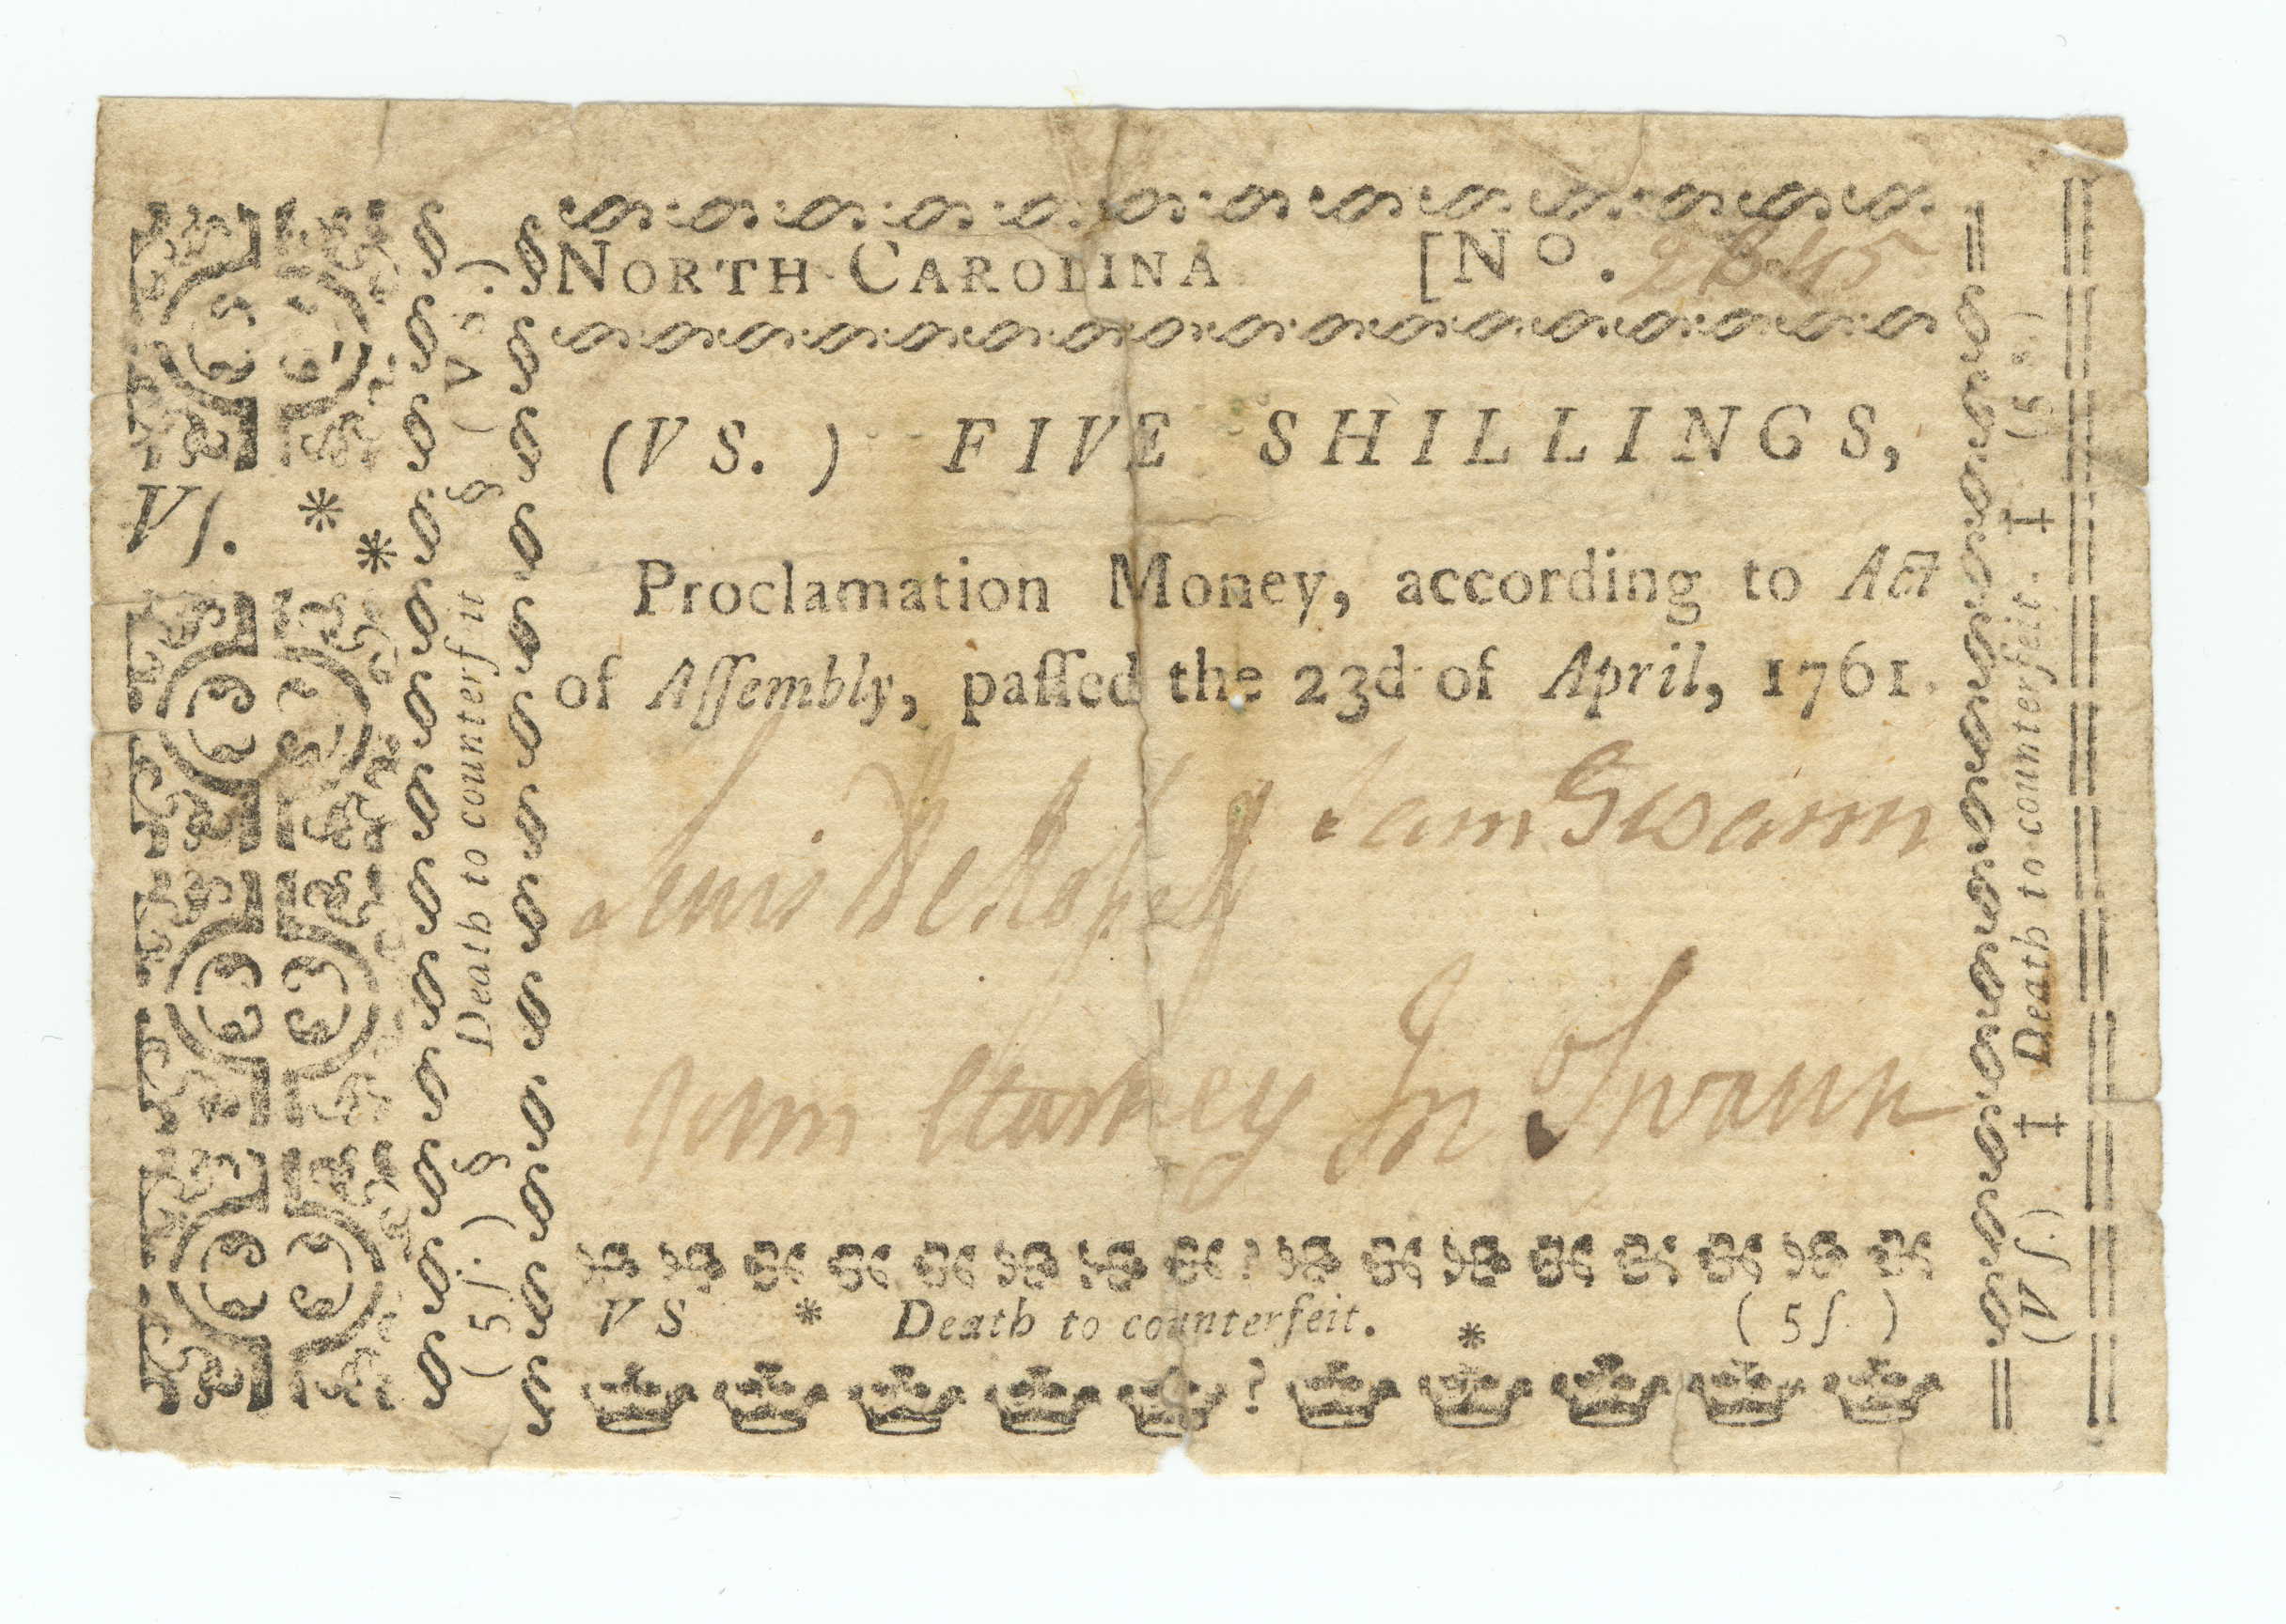 NORTH CAROLINA [No. 
(VS.) FIVE SHILLINGS,
Proclamation Money, according to Act
of Aſſembly, paſſed the 23d of April, 1761.
Sam Swann
Lewis DeRoſſet
John Starkey Jn Swann
V S * Death to counterfeit. * (5ſ.)
Vſ. * *
(5ſ.) § Death to counterfeit § (Vs.)
(Vſ.) ‡ Death to counterfeit. ‡ (5s.)